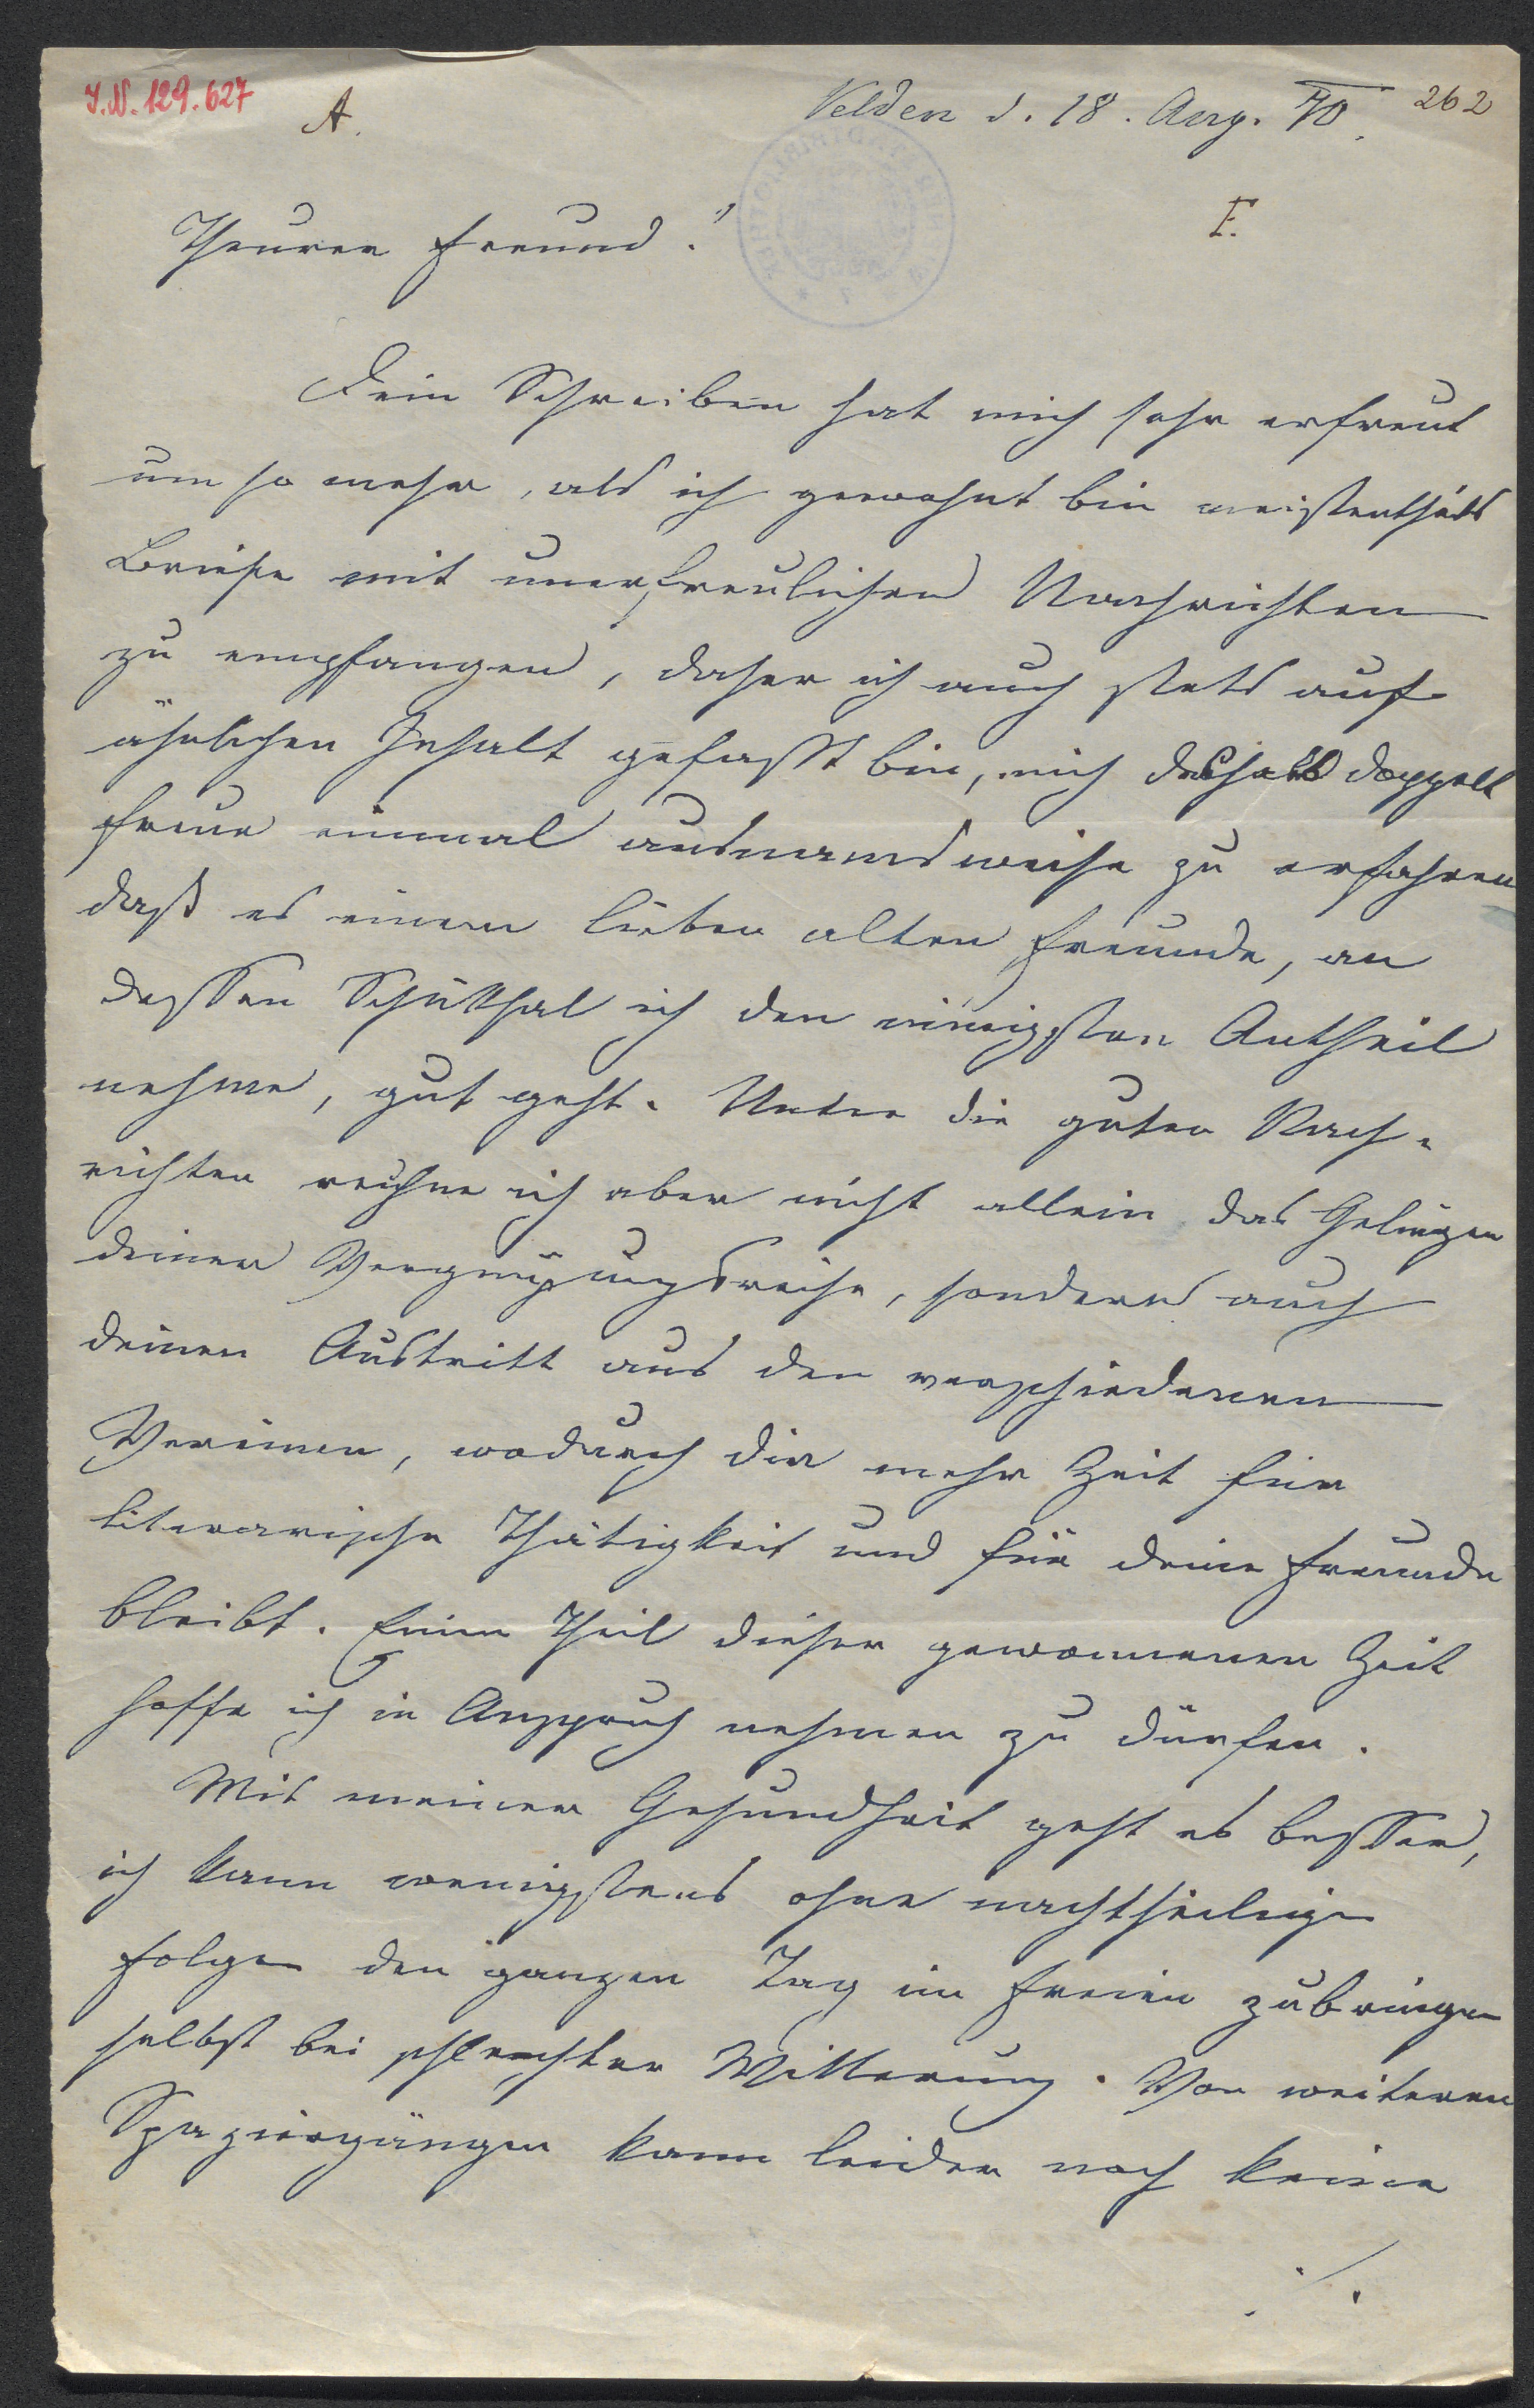 I.N. 129.627
A.
Velden d. 18. Aug. 70.
262
F.
Theurer Freund!
Dein Schreiben hat mich sehr erfreut
um so mehr, als ich gewohnt bin meistentheils
Briefe mit unerfreulichen Nachrichten
zu empfangen, daher ich auch stets auf
ähnlichen Inhalt gefasst bin, mich deshalb doppelt
freue einmal ausnamsweise zu erfahren
daß es einem lieben alten Freunde, an
dessen Schiksal ich den innigsten Antheil
nehme, gut geht. Unter die guten Nach-
richten rechne ich aber nicht allein das Gelingen
deiner Vergnügungsreise, sondern auch
deinen Austritt aus den verschiedenen
Vereinen, wodurch dir mehr Zeit für
literarische Thätigkeit und für deine Freunde
bleibt. Einen Theil dieser gewonnenen Zeit
hoffe ich in Anspruch nehmen zu dürfen.
Mit meiner Gesundheit geht es besser,
ich kann wenigstens ohne nachtheilige
Folgen den ganzen Tag im Freien zubringen
selbst bei schlechter Witterung. Von weiteren
Spaziergängen kann leider noch keine
./.